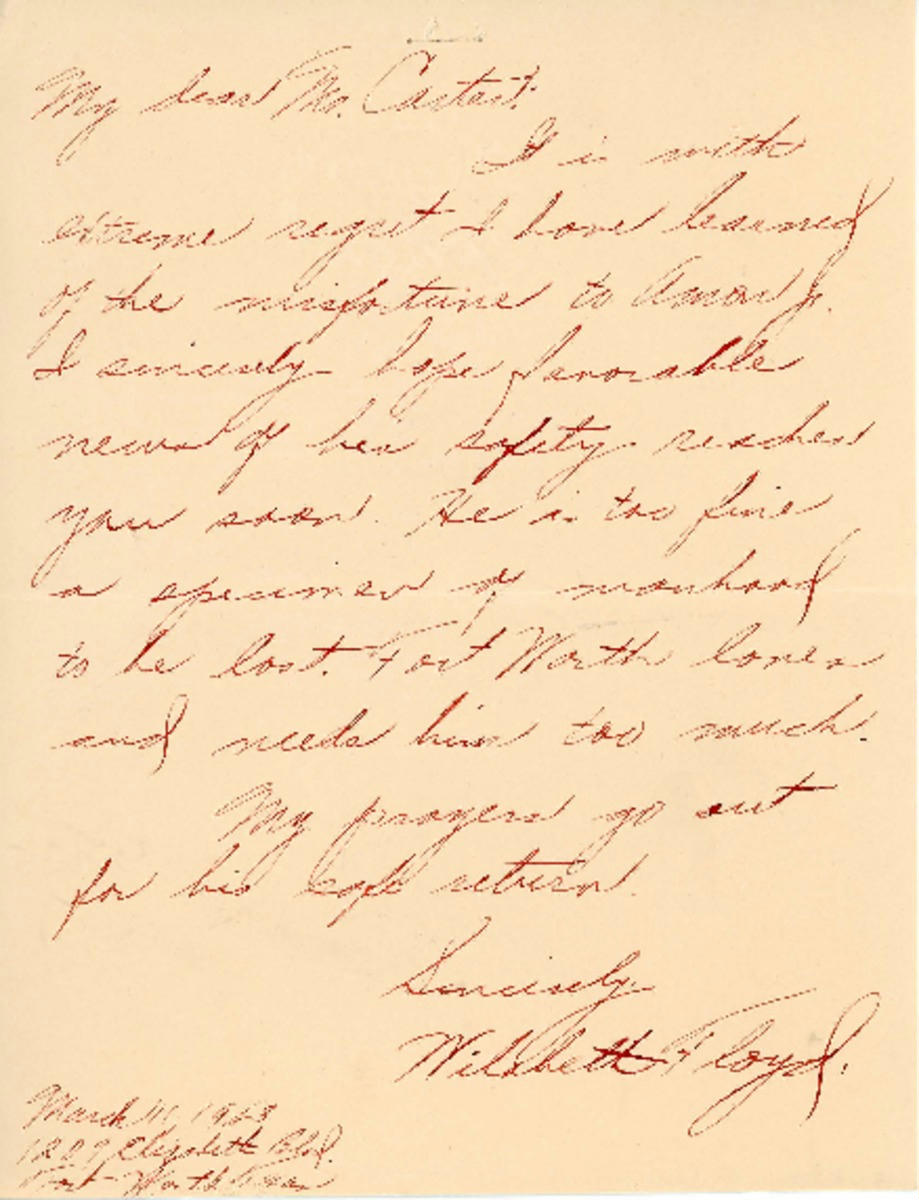 My dear Mr. Carter:
It is with
extreme regret I have learned
of the misfortune to Amon Jr.
I sincerely hope favorable
news of his safety reaches
you soon. He is too fine
a specimen of manhood
to be lost. Fort Worth loves
and needs him too much.
My prayers go out
for his safe return.
Sincerely
Floyd.
March
1209 Elizabeth Blvd.
Fort Worth Texas